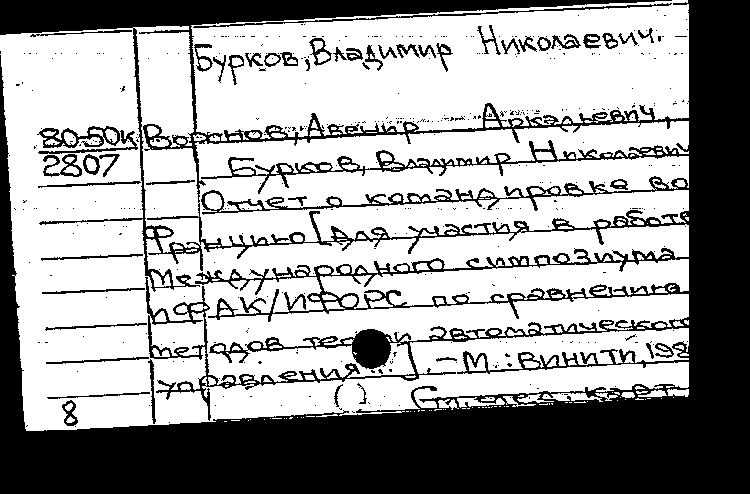 Бурков, Владимир Николаевич.
80-50к Воронов, Авенир Аркадьевич,
2807 Бурков, Владимир Николаевич
Отчет о командировке во
Францию [для участия в работе
Международного симпозиума
ИФАК/ИФОРС по сравнению
методов теории автоматического
управления...]. – М.: ВИНИТИ, 198
8 ( ) См. след. карт.